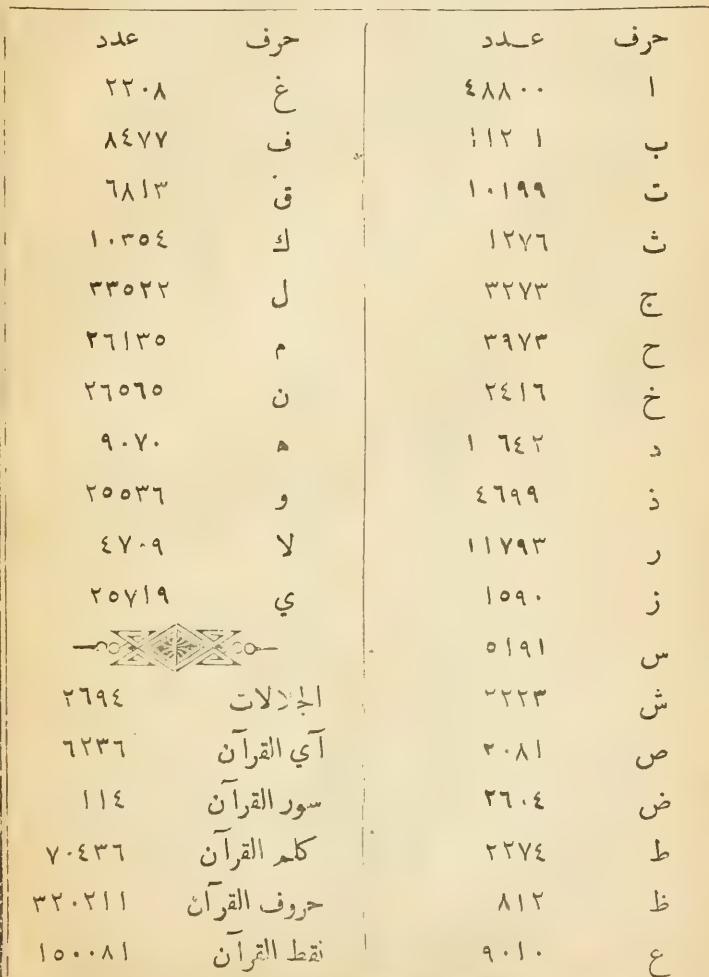 حرف عدد
ا ٤٨٨٠٠
ب
ت ١٠١٩٩
ث ١٢٧٦
ج ٣٢٧٣
ح ٣٩٧٣
خ ٢٤١٦
د
ذ ٤٦٩٩
ر ١١٧٩٣
ز ١٥٩٠
س ٥١٩١
ش
ص ٢٠٨١
ض ٢٦٠٤
ط ٢٢٧٤
ظ ٨١٢
ع ٩٠١٠
حرف عدد
غ ٢٢٠٨
ف ٨٤٧٧
ق ٦٨١٣
ك ١٠٣٥٤
ل ٣٣٥٢٢
م ٢٦١٣٥
ن ٢٦٥٦٥
ه ٩٠٧٠
و ٢٥٥٣٦
لا ٤٧٠٩
ي ٢٥٧١٩
الجلالات ٢٦٩٤
آي القرآن ٦٢٣٦
سور القرآن ١١٤
كلم القرآن ٧٠٤٣٦
حروف القرآن ٣٢٠٢١١
نقط القرآن ١٥٠٠٨١